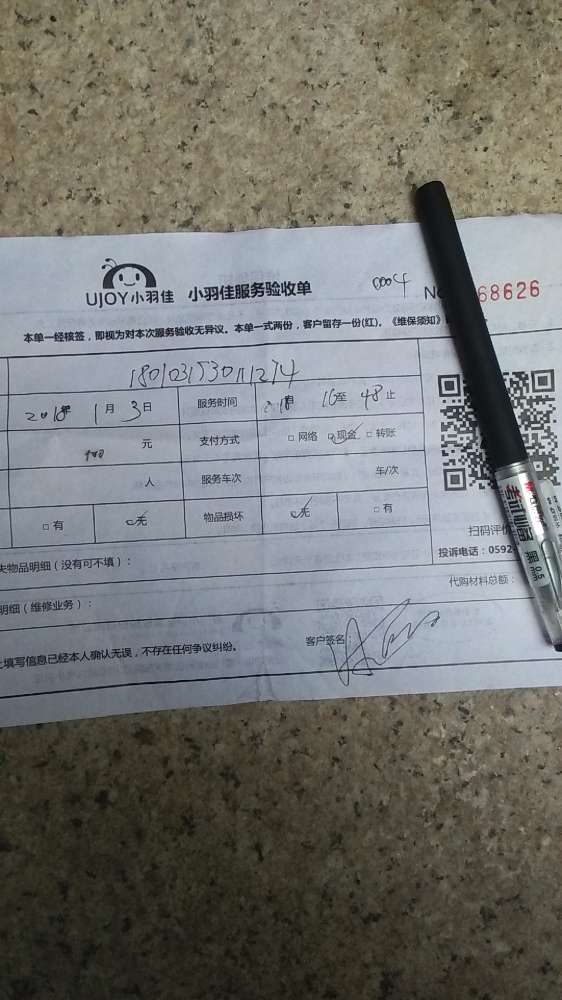 UJOY小羽佳 小羽佳服务验收单 0004 68626
本单一经核签，即视为对本次服务验收无异议。本单一式两份，客户留存一份(红)。《维保须知》
2018年 1月 3日 服务时间 16至 48止
元 支付方式 □网络 现金 □转账
人 服务车次 车/次
□有 无 物品损坏 无 □有
扫码评价
失物品明细（没有可不填）： 投诉电话：0592-
明细（维修业务）： 代购材料总额：
填写信息已经本人确认无误，不存在任何争议纠纷。 客户签名：
考试必备 黑 0.5